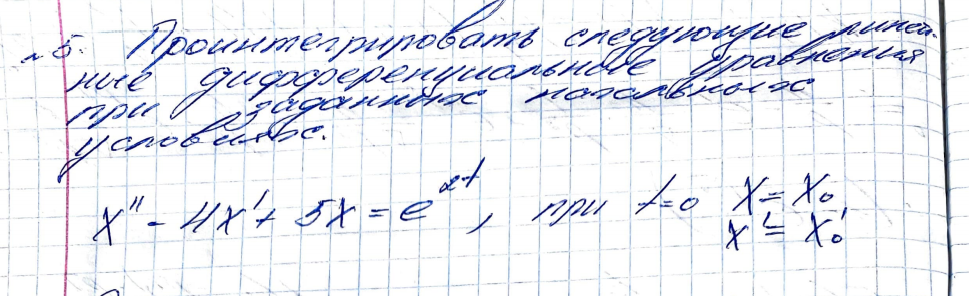 № 5. Проинтегрировать следующие линей-
ные дифференциальные уравнения
при заданных начальных
условиях.
x'' - 4x' + 5x = e^{αt}, при t=0 x = x₀
x' = x₀'